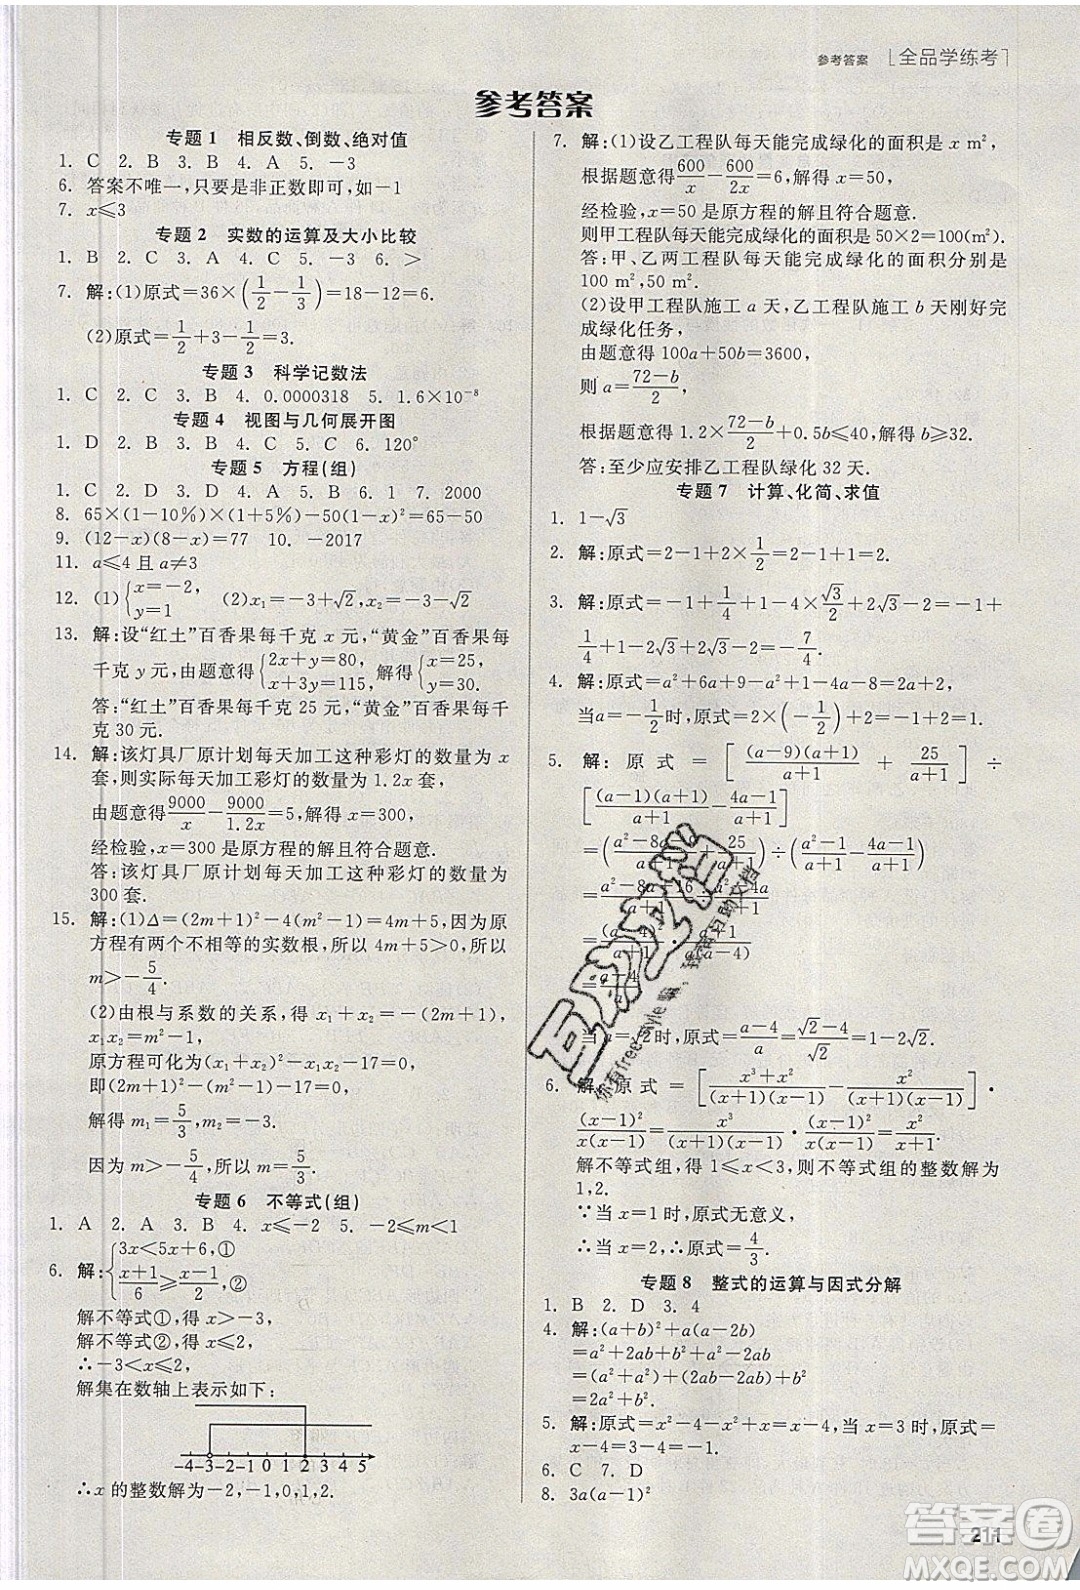 参考答案 [全品学练考]
参考答案
专题 1 相反数、倒数、绝对值
1. C 2. B 3. B 4. A 5. -3
6. 答案不唯一,只要是非正数即可,如-1
7. x≤3
专题 2 实数的运算及大小比较
1. B 2. C 3. A 4. C 5. -3 6. >
7. 解:(1)原式=36×(1/2-1/3)=18-12=6.
(2)原式=1/2+3-1/2=3.
专题 3 科学记数法
1. C 2. C 3. B 4. 0.0000318 5. 1.6×10⁻⁸
专题 4 视图与几何展开图
1. D 2. B 3. D 4. C 5. C 6. 120°
专题 5 方程(组)
1. C 2. B 3. D 4. C 5. A 6. 1 7. 2000
8. 65×(1-10%)×(1+5%)-50(1-x)²=65-50
9. (12-x)(8-x)=77 10. -2017
11. a≤4 且 a≠3
12. (1){x=-2, y=1 (2)x₁=-3+√2,x₂=-3-√2
13. 解:设“红土”百香果每千克 x 元,“黄金”百香果每
千克 y 元,由题意得{2x+y=80, x+3y=115, 解得{x=25, y=30.
答:“红土”百香果每千克 25 元,“黄金”百香果每千
克 30 元.
14. 解:该灯具厂原计划每天加工这种彩灯的数量为 x
套,则实际每天加工彩灯的数量为 1.2x 套,
由题意得9000/x-9000/1.2x=5,解得 x=300,
经检验,x=300 是原方程的解且符合题意.
答:该灯具厂原计划每天加工这种彩灯的数量为
300 套.
15. 解:(1)Δ=(2m+1)²-4(m²-1)=4m+5,因为原
方程有两个不相等的实数根,所以 4m+5>0,所以
m>-5/4.
(2)由根与系数的关系,得 x₁+x₂=-(2m+1),
x₁x₂=m²-1,
原方程可化为(x₁+x₂)²-x₁x₂-17=0,
即(2m+1)²-(m²-1)-17=0,
解得 m₁=5/3,m₂=-3.
因为 m>-5/4,所以 m=5/3.
专题 6 不等式(组)
1. A 2. A 3. B 4. x≤-2 5. -2≤m<1
6. 解:{3x<5x+6,① (x+1)/6≥(x-1)/2,②
解不等式①,得 x>-3,
解不等式②,得 x≤2,
∴-3<x≤2,
解集在数轴上表示如下:
-4-3-2-1 0 1 2 3 4 5
∴x 的整数解为-2,-1,0,1,2.
7. 解:(1)设乙工程队每天能完成绿化的面积是 x m²,
根据题意得600/x-600/2x=6,解得 x=50,
经检验,x=50 是原方程的解且符合题意.
则甲工程队每天能完成绿化的面积是 50×2=100(m²).
答:甲、乙两工程队每天能完成绿化的面积分别是
100 m²,50 m².
(2)设甲工程队施工 a 天,乙工程队施工 b 天刚好完
成绿化任务,
由题意得 100a+50b=3600,
则 a=(72-b)/2,
根据题意得 1.2×(72-b)/2+0.5b≤40,解得 b≥32.
答:至少应安排乙工程队绿化 32 天.
专题 7 计算、化简、求值
1. 1-√3
2. 解:原式=2-1+2×1/2=2-1+1=2.
3. 解:原式=-1+1/4+1-4×√3/2+2√3-2=-1+
1/4+1-2√3+2√3-2=-7/4.
4. 解:原式=a²+6a+9-a²+1-4a-8=2a+2,
当a=-1/2时,原式=2×(-1/2)+2=1.
5. 解:原式=[(a-9)(a+1)/(a+1)+25/(a+1)]÷
[(a-1)(a+1)/(a+1)-(4a-1)/(a+1)]
=((a²-8a-9)/(a+1)+25/(a+1))÷((a²-1)/(a+1)-(4a-1)/(a+1))
=(a²-8a+16)/(a+1)÷(a²-4a)/(a+1)
=(a-4)²/(a+1)·(a+1)/a(a-4)
=(a-4)/a.
当 a=√2时,原式=(a-4)/a=(√2-4)/√2=1-2√2.
6. 解:原式=[(x³+x²)/(x+1)(x-1)-x²/(x+1)(x-1)]·
(x-1)²/x(x-1)=x³/(x+1)(x-1)·(x-1)²/x(x-1)=x²/(x+1).
解不等式组,得 1≤x<3,则不等式组的整数解为
1,2.
∵当 x=1时,原式无意义,
∴当 x=2,∴原式=4/3.
专题 8 整式的运算与因式分解
1. B 2. D 3. 4
4. 解:(a+b)²+a(a-2b)
=a²+2ab+b²+a²-2ab
=(a²+a²)+(2ab-2ab)+b²
=2a²+b².
5. 解:原式=x²-4-x²+x=x-4,当 x=3 时,原式=
x-4=3-4=-1.
6. C 7. D
8. 3a(a-1)²
211
答案圈
MXQE.COM